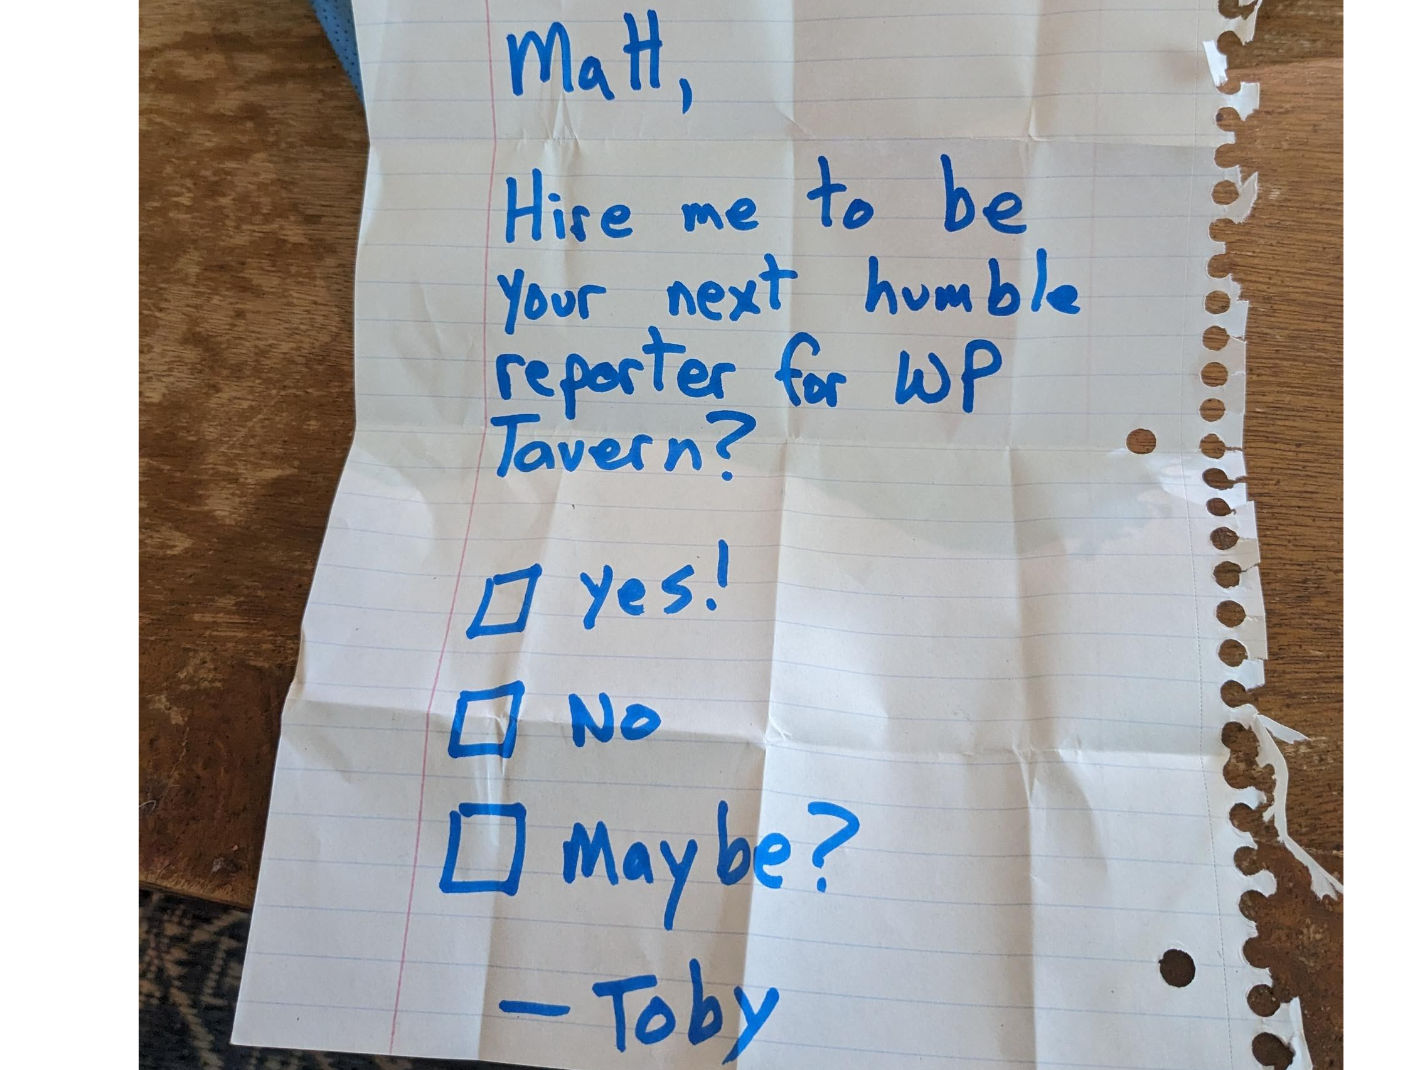 Matt,
Hire me to be
your next humble
reporter for WP
Tavern?
Yes!
No
Maybe?
— Toby